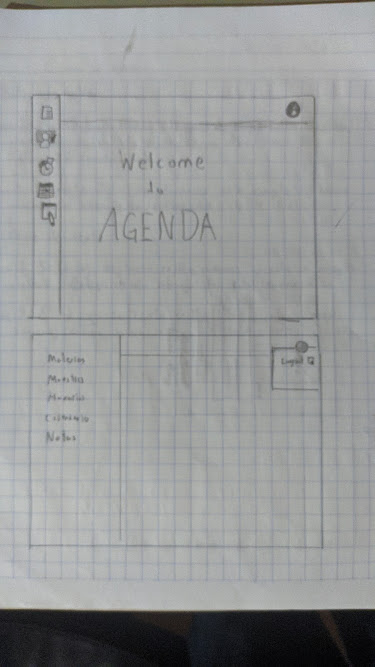 Welcome
to
AGENDA
Materias
Maestros
Horarios
Calendario
Notas
Logout